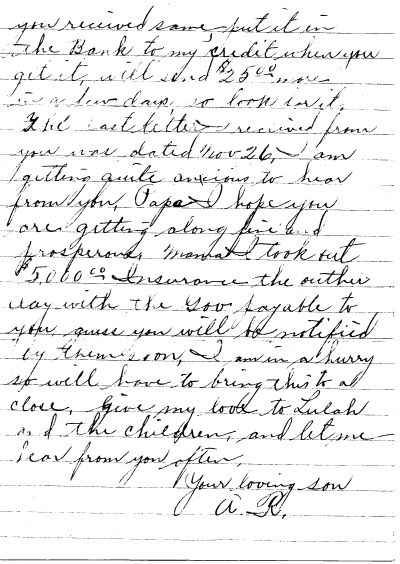 you received same, put it in
the Bank to my credit when you
get it, will send $25.00 more
in a few days, so look for it.
The last letter I received from
you was dated Nov 26, I am
getting quite anxious to hear
from you, Papa I hope you
are getting along fine and
prosperous, Mama I took out
$5,000.00 Insurance the outher
day with the Gov payable to
you, guess you will be notified
by them soon, I am in a hurry
so will have to bring this to a
close, Give my love to Lulah
and the children, and let me
hear from you often,
Your loving son
A. R.